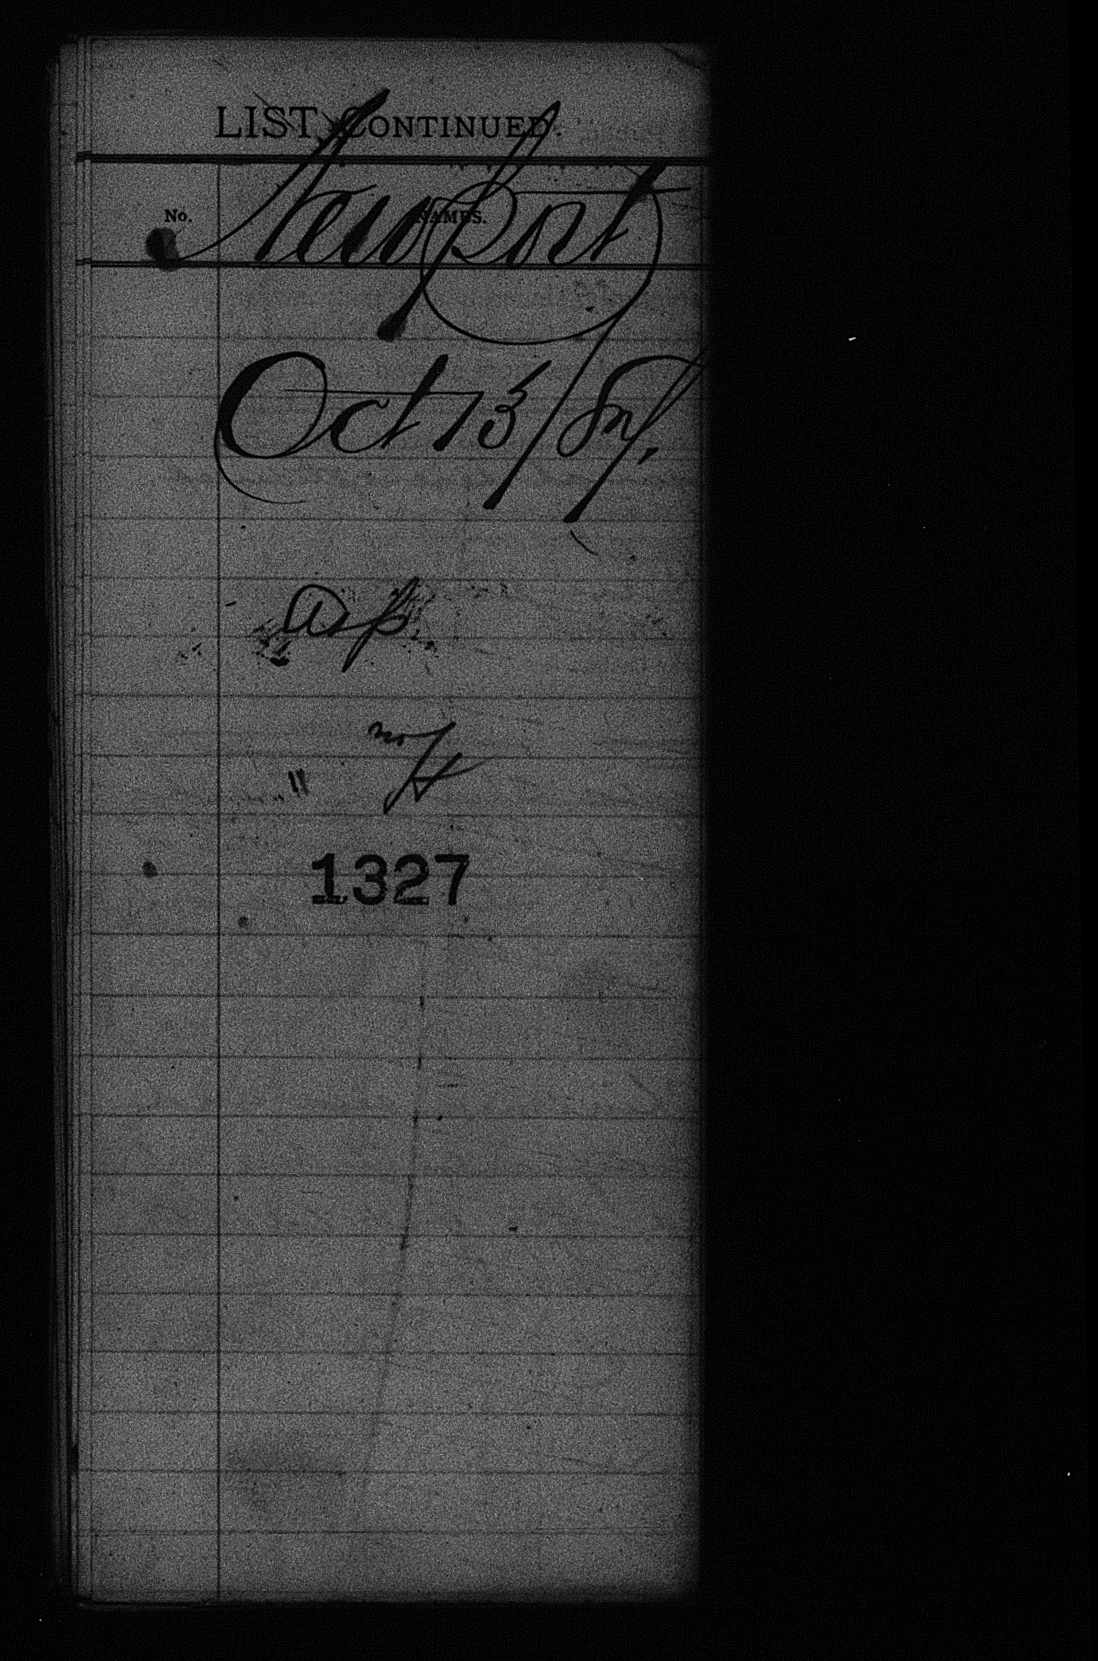 LIST CONTINUED.
No. NAMES.
Newport
Oct 13/87.
"
1327